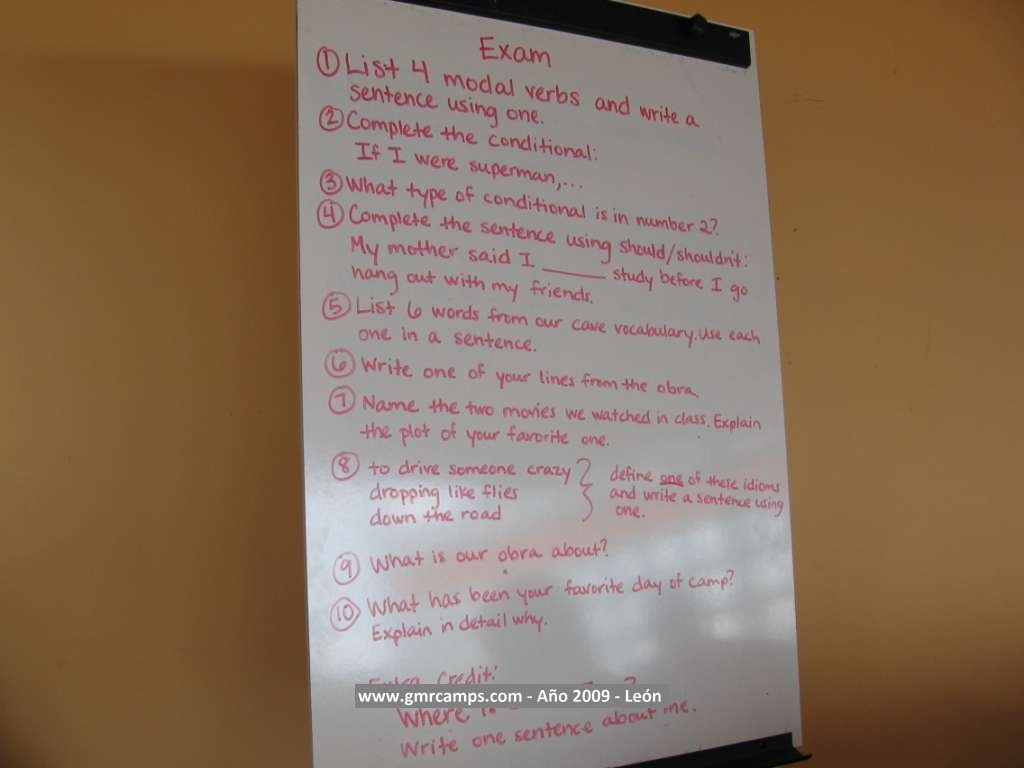 Exam
① List 4 modal verbs and write a
sentence using one.
② Complete the conditional:
If I were superman,...
③ What type of conditional is in number 2?
④ Complete the sentence using should/shouldn't:
My mother said I ______ study before I go
hang out with my friends.
⑤ List 6 words from our cave vocabulary. Use each
one in a sentence.
⑥ Write one of your lines from the obra.
⑦ Name the two movies we watched in class. Explain
the plot of your favorite one.
⑧ to drive someone crazy
dropping like flies
down the road
define one of these idioms
and write a sentence using
one.
⑨ What is our obra about?
⑩ What has been your favorite day of camp?
Explain in detail why.
Extra Credit:
www.gmrcamps.com - Año 2009 - León
Where is ?
Write one sentence about me.